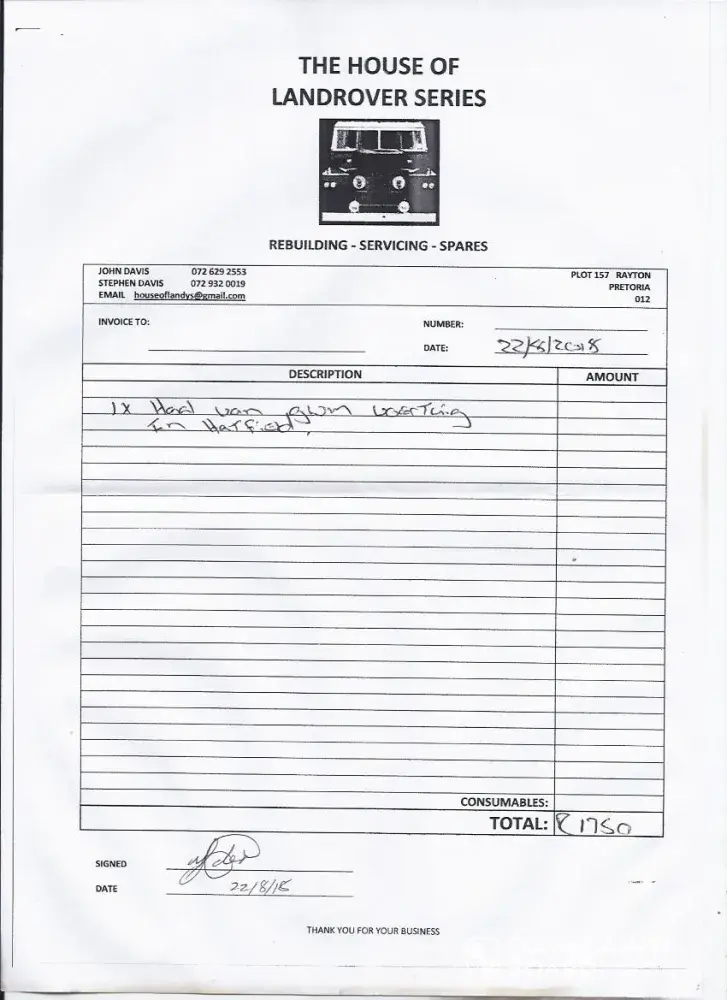 THE HOUSE OF
LANDROVER SERIES
REBUILDING - SERVICING - SPARES
JOHN DAVIS 072 629 2553
STEPHEN DAVIS 072 932 0019
EMAIL houseoflandys@gmail.com
PLOT 157 RAYTON
PRETORIA
012
INVOICE TO:
NUMBER:
DATE: 22/8/2018
DESCRIPTION AMOUNT
1X Haal van gwm
In Hatfield.
CONSUMABLES:
TOTAL: R1750
SIGNED
DATE 22/8/18
THANK YOU FOR YOUR BUSINESS